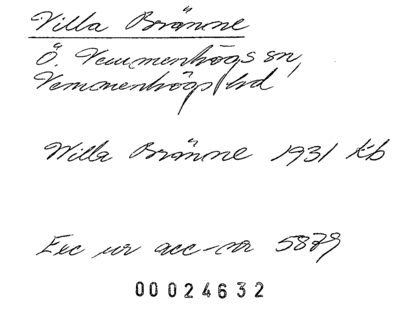 Villa Bränne
Ö. Vemmenhögs sn,
Vemmenhögs hd
Willa Bränne 1931 kb
Exc ur acc-nr 5879
00024632